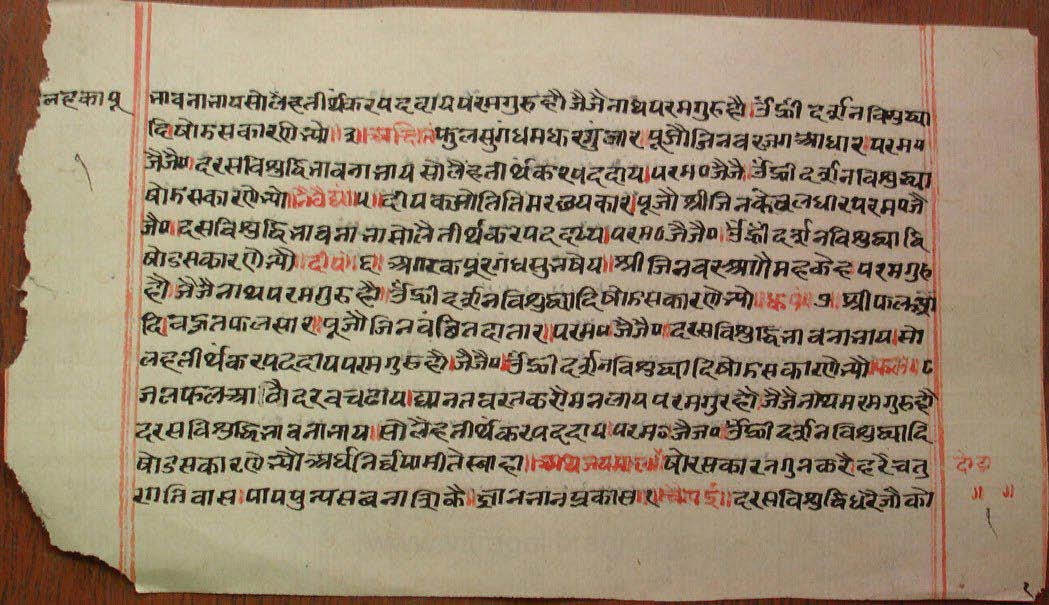 लहका पू
भावनाभायसोलैहतीर्थंकरपददायपरमगुरुहौ।जैजैनाथपरमगुरुहौ।ॐह्रीं दर्शनविशुद्ध्या
दिषोडसकारणेभ्यो॥ ॥फुलसुगंधमधुकरगुंजार।पूजौजिनवरजगआधार।परम॰
जैजै॰।दरसविशुद्धिभावनाभायसोलैहतीर्थंकरपददाय।परम॰जैजै।ॐह्रीं दर्शनविशुद्ध्या
षोडसकारणेभ्यो॥नैवैद्यं॥ दीपकजोतितिमरछयकार।पूजौश्रीजिनकेवलधारपरम॰जै
जै॰।दसविशुद्धिभावनाभासोलैतीर्थंकरपददाय।परम॰जैजै॰।ॐह्रींदर्शनविशुद्ध्यादि
षोडसकारणेभ्यो॥दीपं॥६॥अगरकपूरगंधसुभषेय।श्रीजिनवरआगैमहकेहपरमगुरु
हौ।जैजैनाथपरमगुरुहौ।ॐह्रींदर्शनविशुद्ध्यादिषोडसकारणेभ्यो॥धूपं॥७॥श्रीफल
दिबहुतफलसार।पूजौजिनवंछितदातार।परम॰जैजै॰।दरसविशुद्धिभावनाभाय।सो
लहतीर्थंकरपददायपरमगुरुहौ।जैजै॰।ॐह्रींदर्शनविशुद्ध्यादिषोडसकारणेभ्यो॥फलं॥८
जलफलआठौदरवचढाय।द्यानतवरतकरौमनलायपरमगुरहौ।जैजैनाथपरमगुरुहौ
दरसविशुद्धिभावनाभाय।सोलैहतीर्थंकरपददाय।परम॰जैजै॰।ॐह्रींदर्शनविशुद्ध्यादि
षोडसकारणेभ्योअर्घनिर्वपामीतेस्वाहा॥अथजयमाल॥षोरसकारनगुनकरैहरैचतु
दोहा
गतिवास।पापपुन्यसबनाशिकै।ज्ञानभानप्रकास।१॥चौपई॥दरसविशुद्धिधरैजौको
॥ ॥
१